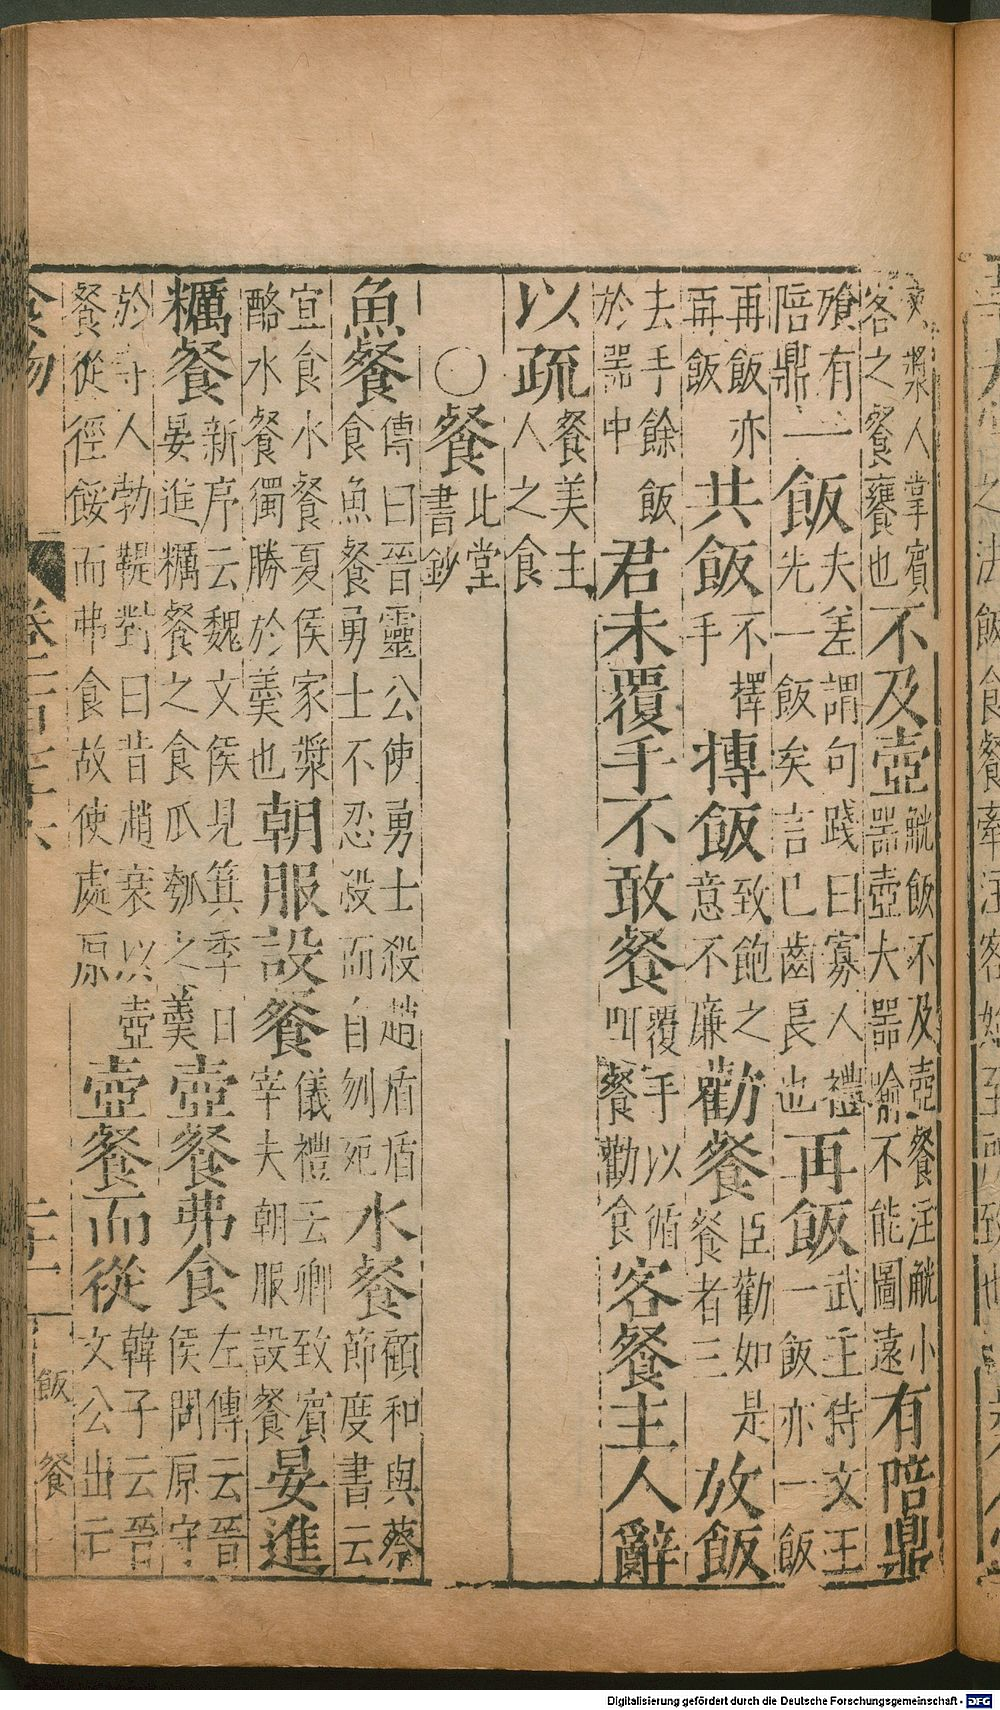 漿人掌賓客之餐饔也不及壺觥飯不及壺餐注觥小器壺大器喻不能圖遠有陪鼎
飧有陪鼎一飯夫差謂句踐曰寡人禮先一飯矣言已齒長也再飯武王侍文王一飯亦一飯
再飯亦再飯共飯不擇手摶飯致飽之意不廉勸餐臣勸如是餐者三放飯
去手餘飯於器中君未覆手不敢餐覆手以循吅餐勸食客餐主人辭
以疏餐美主人之食
○餐北堂書鈔
魚餐傳曰晉靈公使勇士殺趙盾盾食魚餐勇士不忍殺而自刎死水餐顧和與蔡節度書云
宜食水餐夏侯家漿酪水餐獨勝於羹也朝服設餐儀禮云卿致賓宰夫朝服設餐晏進
糲餐新序云魏文侯見箕季曰晏進糲餐之食瓜瓠之羹壺餐弗食左傳云晉侯問原守
於寺人勃鞮對曰昔趙衰以壺餐從徑餒而弗食故使處原壺餐而從韓子云晉文公出亡
食物 二十一 飯 餐
Digitalisierung gefördert durch die Deutsche Forschungsgemeinschaft - DFG